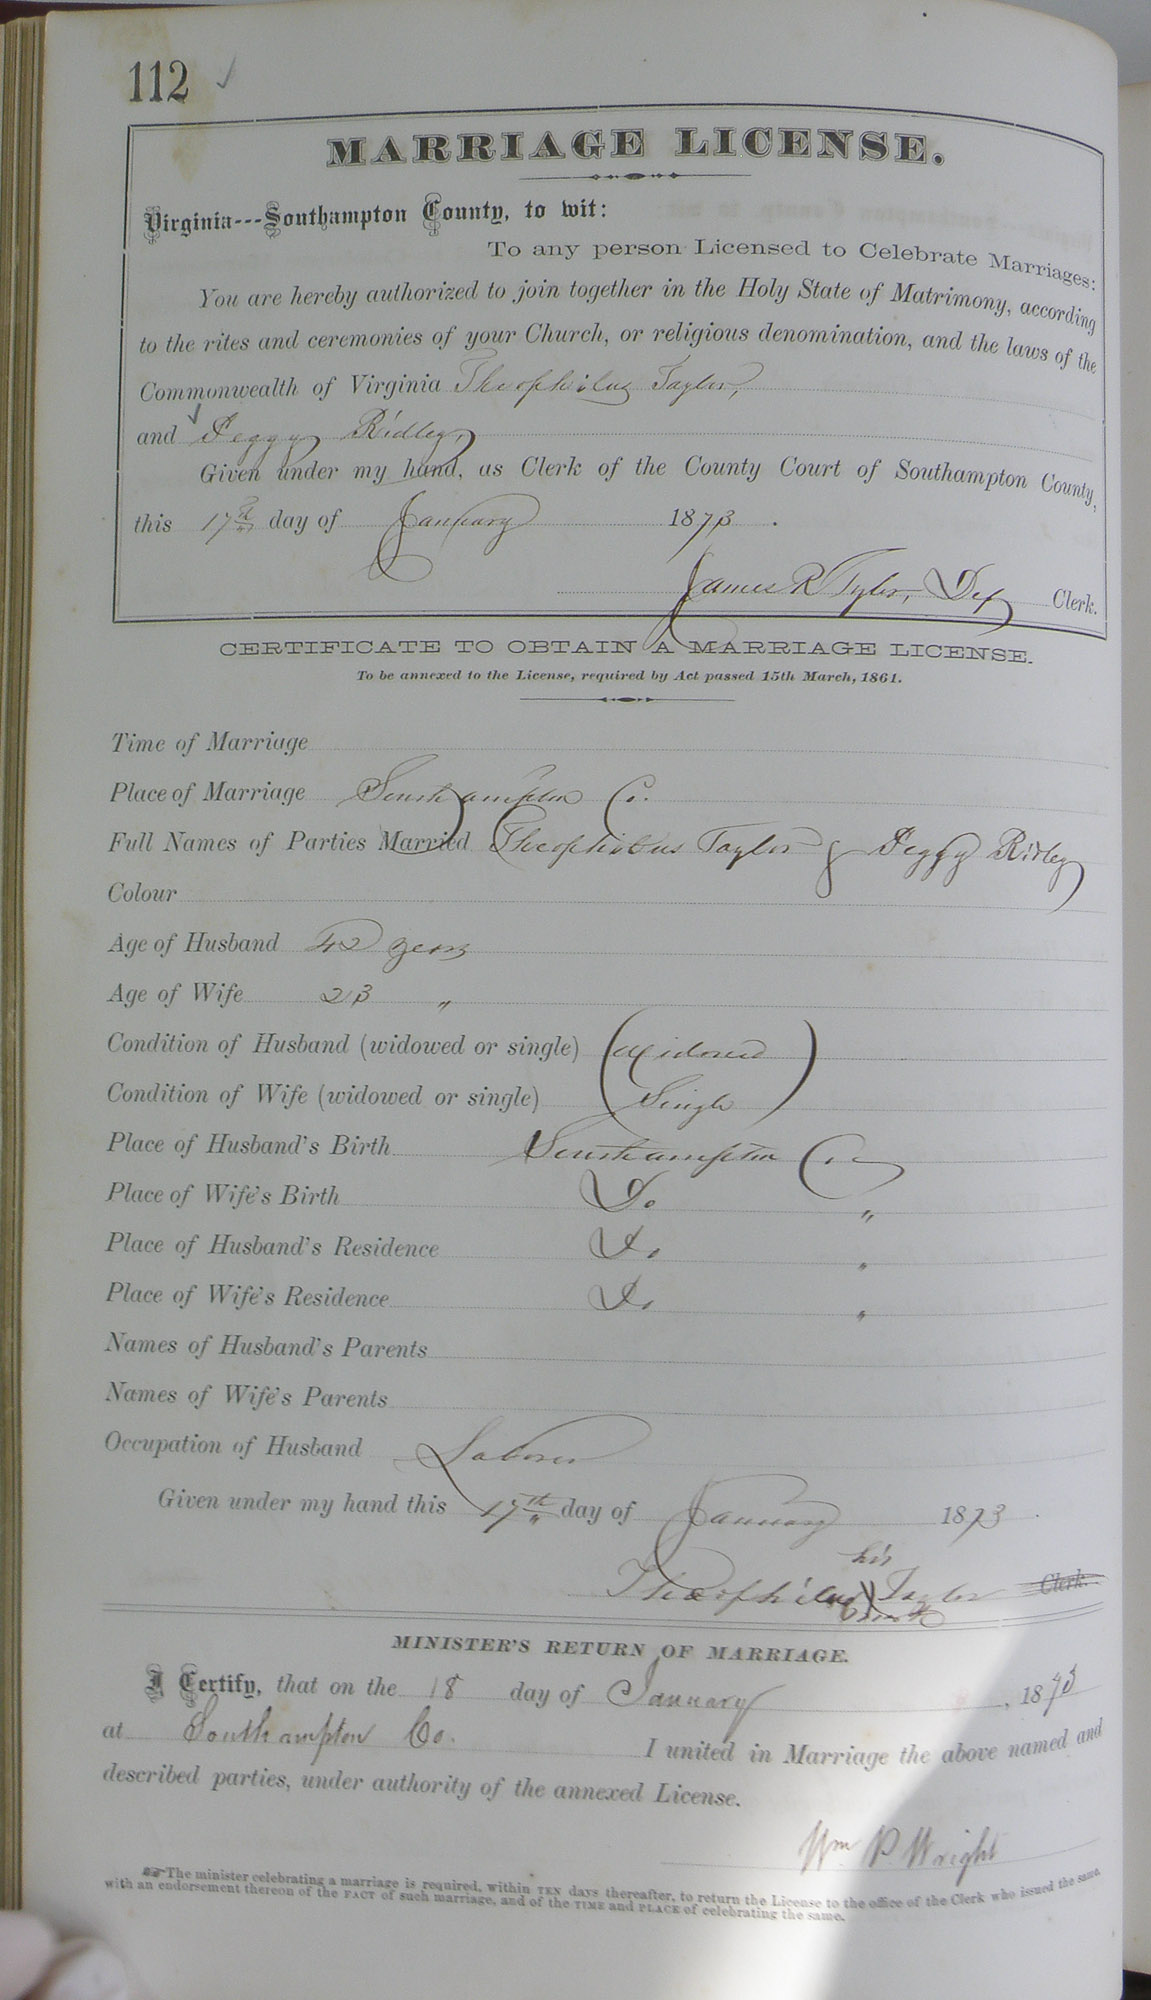 112 ✓
MARRIAGE LICENSE.
Virginia---Southampton County, to wit:
To any person Licensed to Celebrate Marriages:
You are hereby authorized to join together in the Holy State of Matrimony, according
to the rites and ceremonies of your Church, or religious denomination, and the laws of the
Commonwealth of Virginia Theophilus Taylor,
and Peggy Ridley,
Given under my hand, as Clerk of the County Court of Southampton County,
this 17th day of January 1873.
James R Tyler, Dep Clerk.
CERTIFICATE TO OBTAIN A MARRIAGE LICENSE.
To be annexed to the License, required by Act passed 15th March, 1861.
Time of Marriage
Place of Marriage Southampton Co.
Full Names of Parties Married Theophilus Taylor & Peggy Ridley
Colour
Age of Husband 42 years
Age of Wife 23 "
Condition of Husband (widowed or single) Widowed
Condition of Wife (widowed or single) Single
Place of Husband's Birth Southampton Co.
Place of Wife's Birth Do "
Place of Husband's Residence Do "
Place of Wife's Residence Do "
Names of Husband's Parents
Names of Wife's Parents
Occupation of Husband Laborer
Given under my hand this 17th day of January 1873.
his
Theophilus X Taylor Clerk.
mark
MINISTER'S RETURN OF MARRIAGE.
I Certify, that on the 18 day of January, 1873
at Southampton Co. I united in Marriage the above named and
described parties, under authority of the annexed License.
Wm P Wright
☞The minister celebrating a marriage is required, within TEN days thereafter, to return the License to the office of the Clerk who issued the same,
with an endorsement thereon of the FACT of such marriage, and of the TIME and PLACE of celebrating the same.